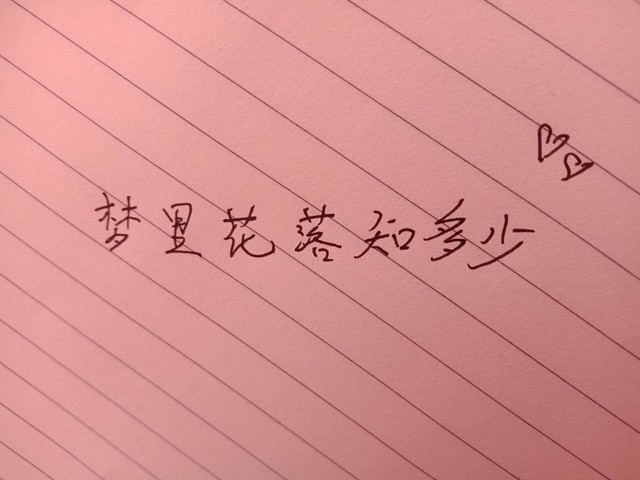 梦里花落知多少